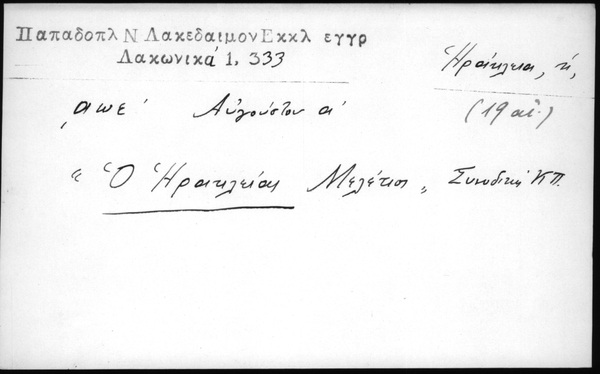 Παπαδοπλ Ν Λακεδαιμον Εκκλ εγγρ
Λακωνικά 1, 333
Ἡράκλεια, ἡ,
͵αωε΄ Αὐγούστου α΄ (19 αἰ.)
"Ὁ Ἡρακλείας Μελέτιος" Συνοδικὴ ΚΠ.